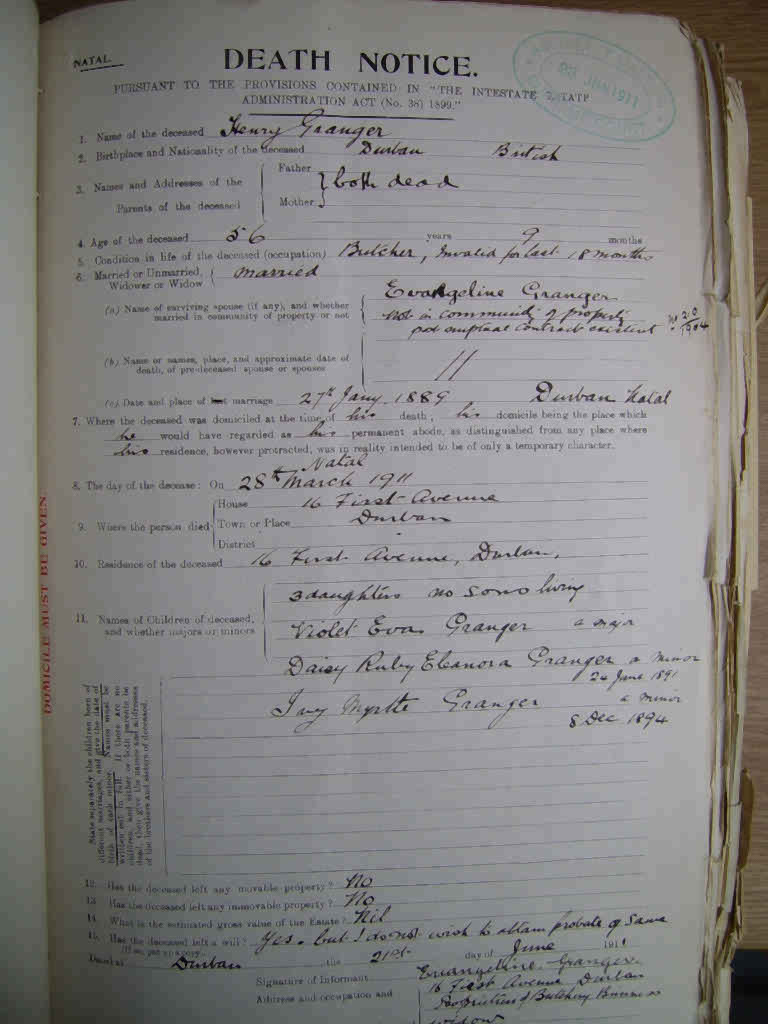 NATAL.
DEATH NOTICE.
PURSUANT TO THE PROVISIONS CONTAINED IN "THE INTESTATE ESTATE
ADMINISTRATION ACT (No. 38) 1899."
JUN 1911
1. Name of the deceased Henry Granger
2. Birthplace and Nationality of the deceased Durban British
3. Names and Addresses of the Parents of the deceased { Father Mother } both dead
4. Age of the deceased 56 years 9 months
5. Condition in life of the deceased (occupation) Butcher, Invalid for last 18 months
6. Married or Unmarried, Widower or Widow { married
(a) Name of surviving spouse (if any), and whether married in community of property or not { Evangeline Granger
not in community of property
contract existent
(b) Name or names, place, and approximate date of death, of pre-deceased spouse or spouses //
(c) Date and place of last marriage 27th Jany. 1889 Durban Natal
7. Where the deceased was domiciled at the time of his death; his domicile being the place which
he would have regarded as his permanent abode, as distinguished from any place where
his residence, however protracted, was in reality intended to be of only a temporary character.
Natal
8. The day of the decease: On 28th March 1911
9. Where the person died { House 16 First Avenue
Town or Place Durban
District
10. Residence of the deceased 16 First Avenue, Durban,
11. Names of Children of deceased, and whether majors or minors
3 daughters no sons living
Violet Eva Granger a major
Daisy Ruby Eleanora Granger a minor
24 June 1891
Ivy Myrtle Granger a minor
8 Dec 1894
State separately the children born of
different marriages, and give the date of
birth of each minor. Names must be
written out in full. If there are no
children, and either or both parents be
dead, then give the names and addresses
of the brothers and sisters of deceased.
DOMICILE MUST BE GIVEN.
12. Has the deceased left any movable property? No
13. Has the deceased left any immovable property? No
14. What is the estimated gross value of the Estate? Nil
15. Has the deceased left a will? Yes. but I do not wish to obtain probate of same
Dated at Durban the 21st day of June 1911
Signature of Informant Evangeline Granger
Address and occupation and 16 First Avenue Durban
Proprietress of Butchery Business
widow